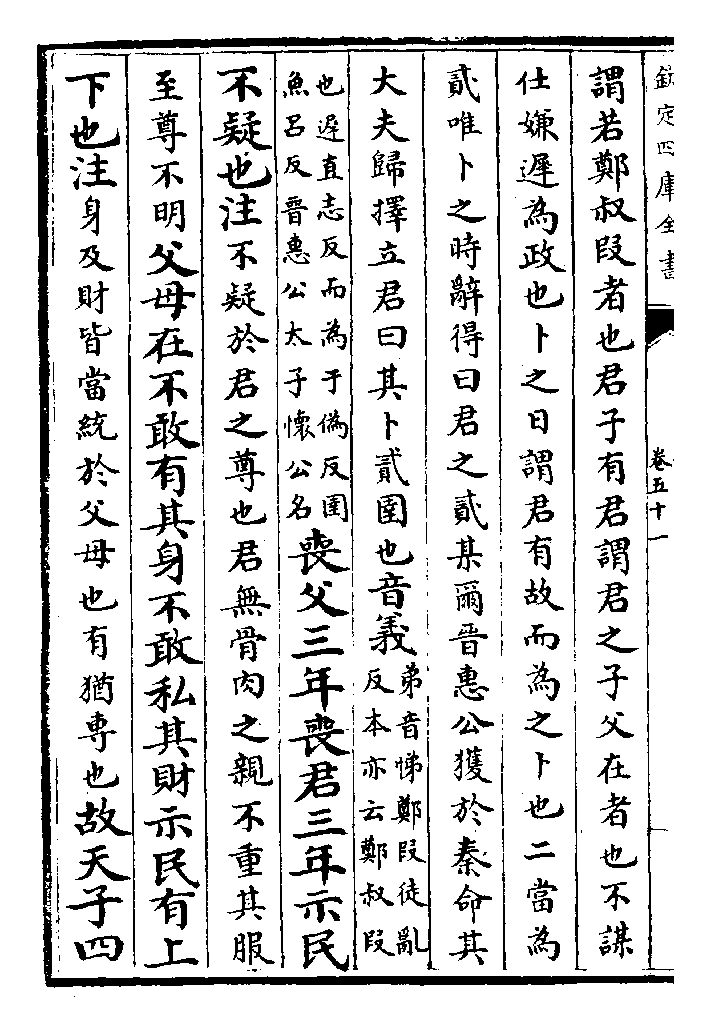 欽定四庫全書
卷五十一
謂若鄭叔段者也君子有君謂君之子父在者也不謀
仕嫌遲為政也卜之日謂君有故而為之卜也二當為
貳唯卜之時辭得曰君之貳某爾晉惠公獲於秦命其
大夫歸擇立君曰其卜貳圉也音義弟音悌鄭段徒亂
反本亦云鄭叔段
也遲直志反而為于偽反圉
魚呂反晉惠公太子懷公名喪父三年喪君三年示民
不疑也注不疑於君之尊也君無骨肉之親不重其服
至尊不明父母在不敢有其身不敢私其財示民有上
下也注身及財皆當統於父母也有猶専也故天子四